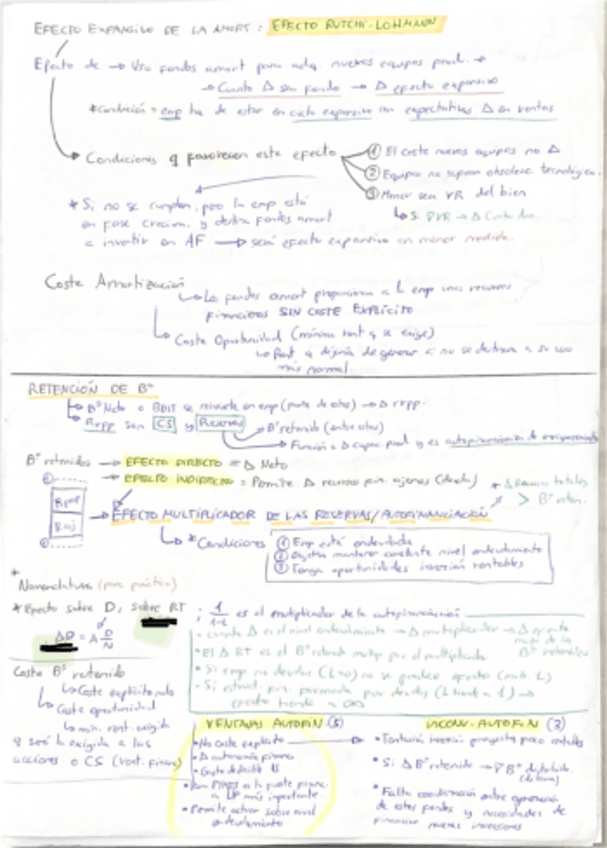 EFECTO EXPANSIVO DE LA AMORT: EFECTO RUTCHI-LOHMANN
Efecto de → Uso fondos amort para adq. nuevos equipos prod. →
→ Cuanto Δ sea fondo → Δ efecto expansivo
*Condición = emp ha de estar en ciclo expansivo con expectativas Δ en ventas
→ Condiciones q favorecen este efecto
① El coste nuevos equipos no Δ
② Equipos no sufran obsolesc tecnológica.
③ Menor sea VR del bien
↳ Si ∇VR → Δ Cuota Am.
* Si no se cumplen, pero la emp está
en fase crecim. y destina fondos amort
a invertir en AF → será efecto expansivo en menor medida.
Coste Amortización
↳ Los fondos amort proporcionan a la emp unos recursos
financieros SIN COSTE EXPLÍCITO
↳ Coste Oportunidad (mínima rent q se exige)
↳ Rent q dejaría de generar si no se destinara a su uso
más normal.
RETENCIÓN DE Bº
↳ Bº Neto o BDIT se reinvierte en emp (parte de otros) → Δ rrpp.
↳ Rrpp son CS y Reservas
→ Bº retenido (entre otros)
→ Función: Δ capac prod y es autofinanciación de enriquecimiento
Bº retenidos → EFECTO DIRECTO = Δ Neto
→ EFECTO INDIRECTO = Permite Δ recursos fin. ajenos (deuda)
* Δ Recursos totales
> Bº reten.
Rpp
Raj
→ EFECTO MULTIPLICADOR DE LAS RESERVAS/AUTOFINANCIACIÓN
↳ *Condiciones
① Emp esté endeudada
② Objetivo mantener constante nivel endeudamiento
③ Tenga oportunidades inversión rentables
*
Nomenclatura (para práctica)
*Efecto sobre D, sobre RT
ΔD = Δ D/N
; 1/1-L es el multiplicador de la autofinanciación
• Cuanto Δ es el nivel endeudamiento → Δ multiplicador → Δ
de la Bº retenidos
• El Δ RT es el Bº retenido multip. por el multiplicador
• Si emp no deudas (L=0) no se produce efecto (mult. 1)
• Si estruct fin. formada por deudas (L tiende a 1) →
efecto tiende a ∞
Coste Bº retenido
↳ Coste explícito nulo
↳ Coste oportunidad
↳ mín. rent. exigida
q será la exigida a las
acciones o CS (rent. financ)
VENTAJAS AUTOFIN. (5)
• No coste explícito
• Δ autonomía financ
• Gasto deducible IS
• Para PYMES es la fuente financ.
a LP más importante
• Permite actuar sobre nivel
endeudamiento
INCONV. AUTOFIN (3)
• Tentación inversión proyectos poco rentables
• Si Δ Bº retenido → ∇ Bº distribuido.
• Falta coordinación entre generación
de estos fondos y necesidades de
financiar nuevas inversiones